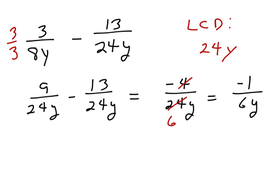 3/3 3/8y - 13/24y LCD:
24y
9/24y - 13/24y = -4/24y = -1/6y
6